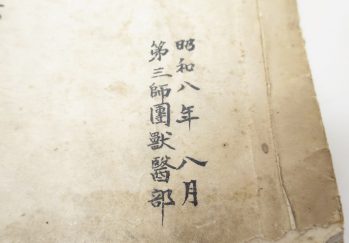 昭和八年八月
第三師團獸醫部